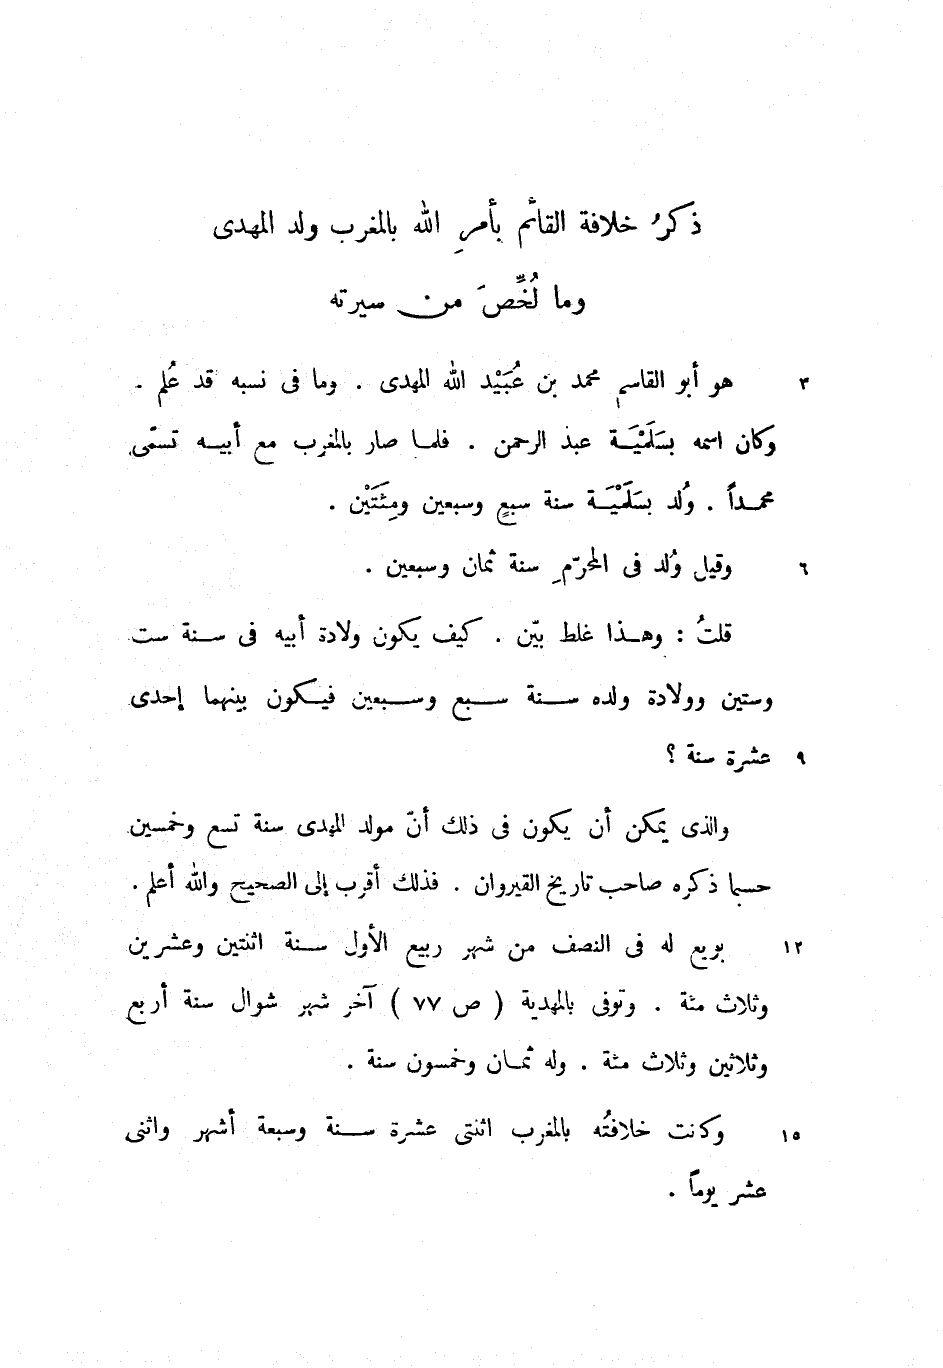 ذكرُ خلافة القائم بأمرِ الله بالمغرب ولد المهدى
وما لُخِّصَ من سيرته
٣ هو أبو القاسم محمد بن عُبَيْد الله المهدى . وما فى نسبه قد عُلم .
وكان اسمه بسَلَمْيَـة عبد الرحمن . فلمـا صار بالمغرب مع أبيـه تسمّى
محمـداً . وُلد بسَلَمْيَـة سنة سبعٍ وسبعين ومِئَتَيْن .
٦ وقيل وُلد فى المحرّمِ سنة ثمان وسبعين .
قلتُ : وهـذا غلط بيّن . كيف يكون ولادة أبيه فى سـنة ست
وستين وولادة ولده سـنة سـبع وسـبعين فيـكون بينهما إحدى
٩ عشرة سنة ؟
والذى يمكن أن يكون فى ذلك أنّ مولد المهدى سنة تسع وخمسين
حسبما ذكره صاحب تاريخ القيروان . فذلك أقرب إلى الصحيح والله أعلم .
١٢ بويع له فى النصف من شهر ربيع الأول سـنة اثنتين وعشرين
وثلاث مئة . وتوفى بالمهدية ( ص ٧٧ ) آخر شهر شوال سنة أربع
وثلاثين وثلاث مئة . وله ثمـان وخمسون سنة .
١٥ وكانت خلافتُه بالمغرب اثنتى عشرة سـنة وسبعة أشهر واثنى
عشر يوماً .